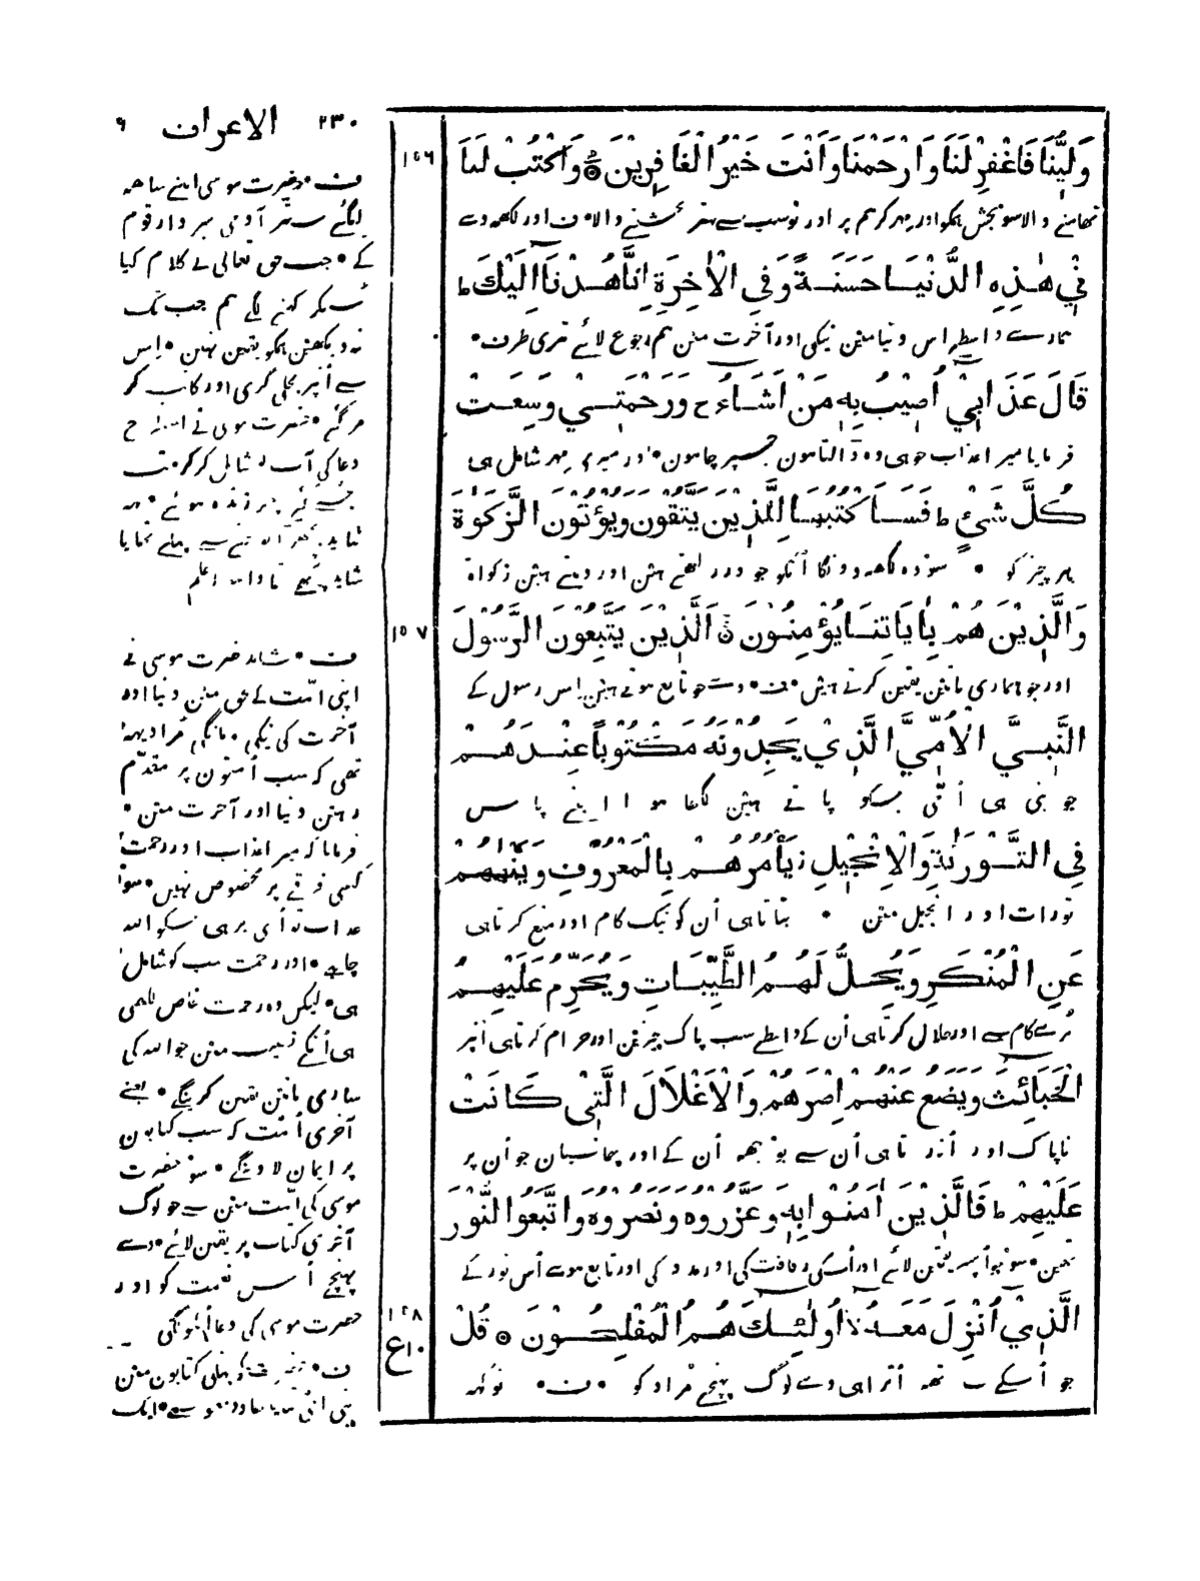 ۲۳۰ الاعراف ۹
وَلِيُّنَا فَاغْفِرْ لَنَا وَارْحَمْنَا وَاَنْتَ خَيْرُ الْغَافِرِيْنَ ۞ وَاكْتُبْ لَنَا
۱۵۶
تھامنے والا سو بخش ہمکو اور مہر کر ہم پر اور تو سب سے بہتر بخشنے والا ف اور لکھ دے
فِيْ هٰذِهِ الدُّنْيَا حَسَنَةً وَّفِي الْاٰخِرَةِ اِنَّا هُدْنَا اِلَيْكَ ط
ہمارے واسطے اس دنیا مین نیکی اور آخرت مین ہم رجوع لائے تیری طرف •
قَالَ عَذَابِيْ اُصِيْبُ بِهٖ مَنْ اَشَاءُ ج وَرَحْمَتِيْ وَسِعَتْ
فرمایا میرا عذاب جو ہی وہ ڈالتا ہون جسپر چاہون • اور میری مہر شامل ہی
كُلَّ شَيْءٍ ط فَسَاَكْتُبُهَا لِلَّذِيْنَ يَتَّقُوْنَ وَيُؤْتُوْنَ الزَّكٰوةَ
ہر چیز کو • سو وہ لکھ دونگا انکو جو ڈر رکھتے ہین اور دیتے ہین زکواة
وَالَّذِيْنَ هُمْ بِاٰيَاتِنَا يُؤْمِنُوْنَ ۞ اَلَّذِيْنَ يَتَّبِعُوْنَ الرَّسُوْلَ
۱۵۷
اور جو ہماری باتین یقین کرتے ہین • ف • وے جو تابع ہوتے ہین اس رسول کے
النَّبِيَّ الْاُمِّيَّ الَّذِيْ يَجِدُوْنَهٗ مَكْتُوْبًا عِنْدَهُمْ
جو نبی ہی اُمّی جسکو پاتے ہین لکھا ہوا اپنے پاس
فِي التَّوْرٰىةِ وَالْاِنْجِيْلِ ز يَأْمُرُهُمْ بِالْمَعْرُوْفِ وَيَنْهٰهُمْ
تورات اور انجیل مین • بتاتا ہی اُن کو نیک کام اور منع کرتا ہی
عَنِ الْمُنْكَرِ وَيُحِلُّ لَهُمُ الطَّيِّبَاتِ وَيُحَرِّمُ عَلَيْهِمُ
بُرے کام سے اور حلال کرتا ہی اُن کے واسطے سب پاک چیزین اور حرام کرتا ہی اُنپر
الْخَبَائِثَ وَيَضَعُ عَنْهُمْ اِصْرَهُمْ وَالْاَغْلَالَ الَّتِيْ كَانَتْ
ناپاک اور اُتارتا ہی اُن سے بوجھ اُن کے اور پھانسیان جو اُن پر
عَلَيْهِمْ ط فَالَّذِيْنَ اٰمَنُوْا بِهٖ وَعَزَّرُوْهُ وَنَصَرُوْهُ وَاتَّبَعُوا النُّوْرَ
تھین • سو جو اُسپر یقین لائے اور اُسکی رفاقت کی اور مدد کی اور تابع ہوے اُس نور کے
الَّذِيْ اُنْزِلَ مَعَهٗ لا اُولٰئِكَ هُمُ الْمُفْلِحُوْنَ ۞ قُلْ
۱۵۸
ع۱۰
جو اُسکے ساتھ اُترا ہی وے لوگ پہنچے مُراد کو • ف • تو کہہ
ف • حضرت موسی اپنے ساتھ
لیگئے ستر آدمی سردار قوم
کے • جب حق تعالی نے کلام کیا
سُنکر کہنے لگے ہم جب تک
نہ دیکھین ہمکو یقین نہین • اِس
سے اُنپر بجلی گری اور کانپ کر
مر گئے • حضرت موسی نے
دعا کی آپ شامل کر کر تب
پھر زندہ ہوئے • یہ
شاید سے پہلے تھا یا
شاید پیچھے تھا واللہ اعلم
ف • شاید حضرت موسی نے
اپنی امّت کے حق مین دنیا اور
آخرت کی نیکی • مانگی مُراد یہہ
تھی کہ سب اُمتون پر مقدّم
رہین دنیا اور آخرت مین •
فرمایا کہ میرا عذاب اور رحمت
کسی فرقے پر مخصوص نہین • سو
عذاب تو اُسی پر ہی جسکو اللہ
چاہے • اور رحمت سب کو شامل
ہی • لیکن وہ رحمت خاص لکھی
ہی اُنکے نصیب مین جو اللہ کی
ساری باتین یقین کرینگے • یعنے
آخری اُمّت کہ سب کتابون
پر ایمان لاوینگے • سو حضرت
موسی کی امّت مین سے جو لوگ
آخری کتاب پر یقین لائے • وے
پہنچے اُس نعمت کو اور
حضرت موسی کی دعا اُنکو لگی
ف • حضرت کو پہلی کتابون مین
نبی اُمّی • ایک